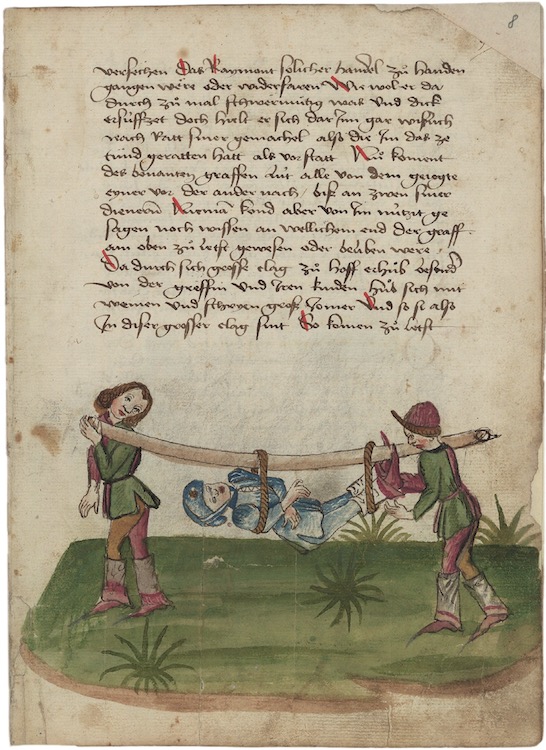 8
versechen Das Raymont sölicher handel zů handen
gangen were oder widerfaren Wie wol er da
durch zů mal schwermüttig was Und dick
ersüffzet doch hielt er sich dar Inn gar wislich
nach Ratt siner gemachel als die Im das ze
tünd geratten hatt als vorstatt Nu koment
des benanten graffen lüt alle von dem geiegte
eyner vor der ander nach / biß an zwen siner
dienern Nieman kond aber von Im nützit ge
sagen noch wissen an wellichem end der graff
am oben zů letst gewesen oder beliben were /
Da durch sich grosse clag zů hoff erhůb besond
von der greffin und Iren kinden hůb sich mit
weinen und schryen groß Jomer Und so si also
In diser grosser clag sint So komen zů letst